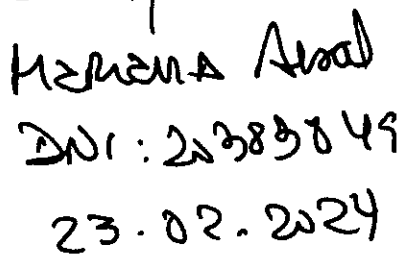 Mariana Aisal
DNI: 20383849
23.02.2024